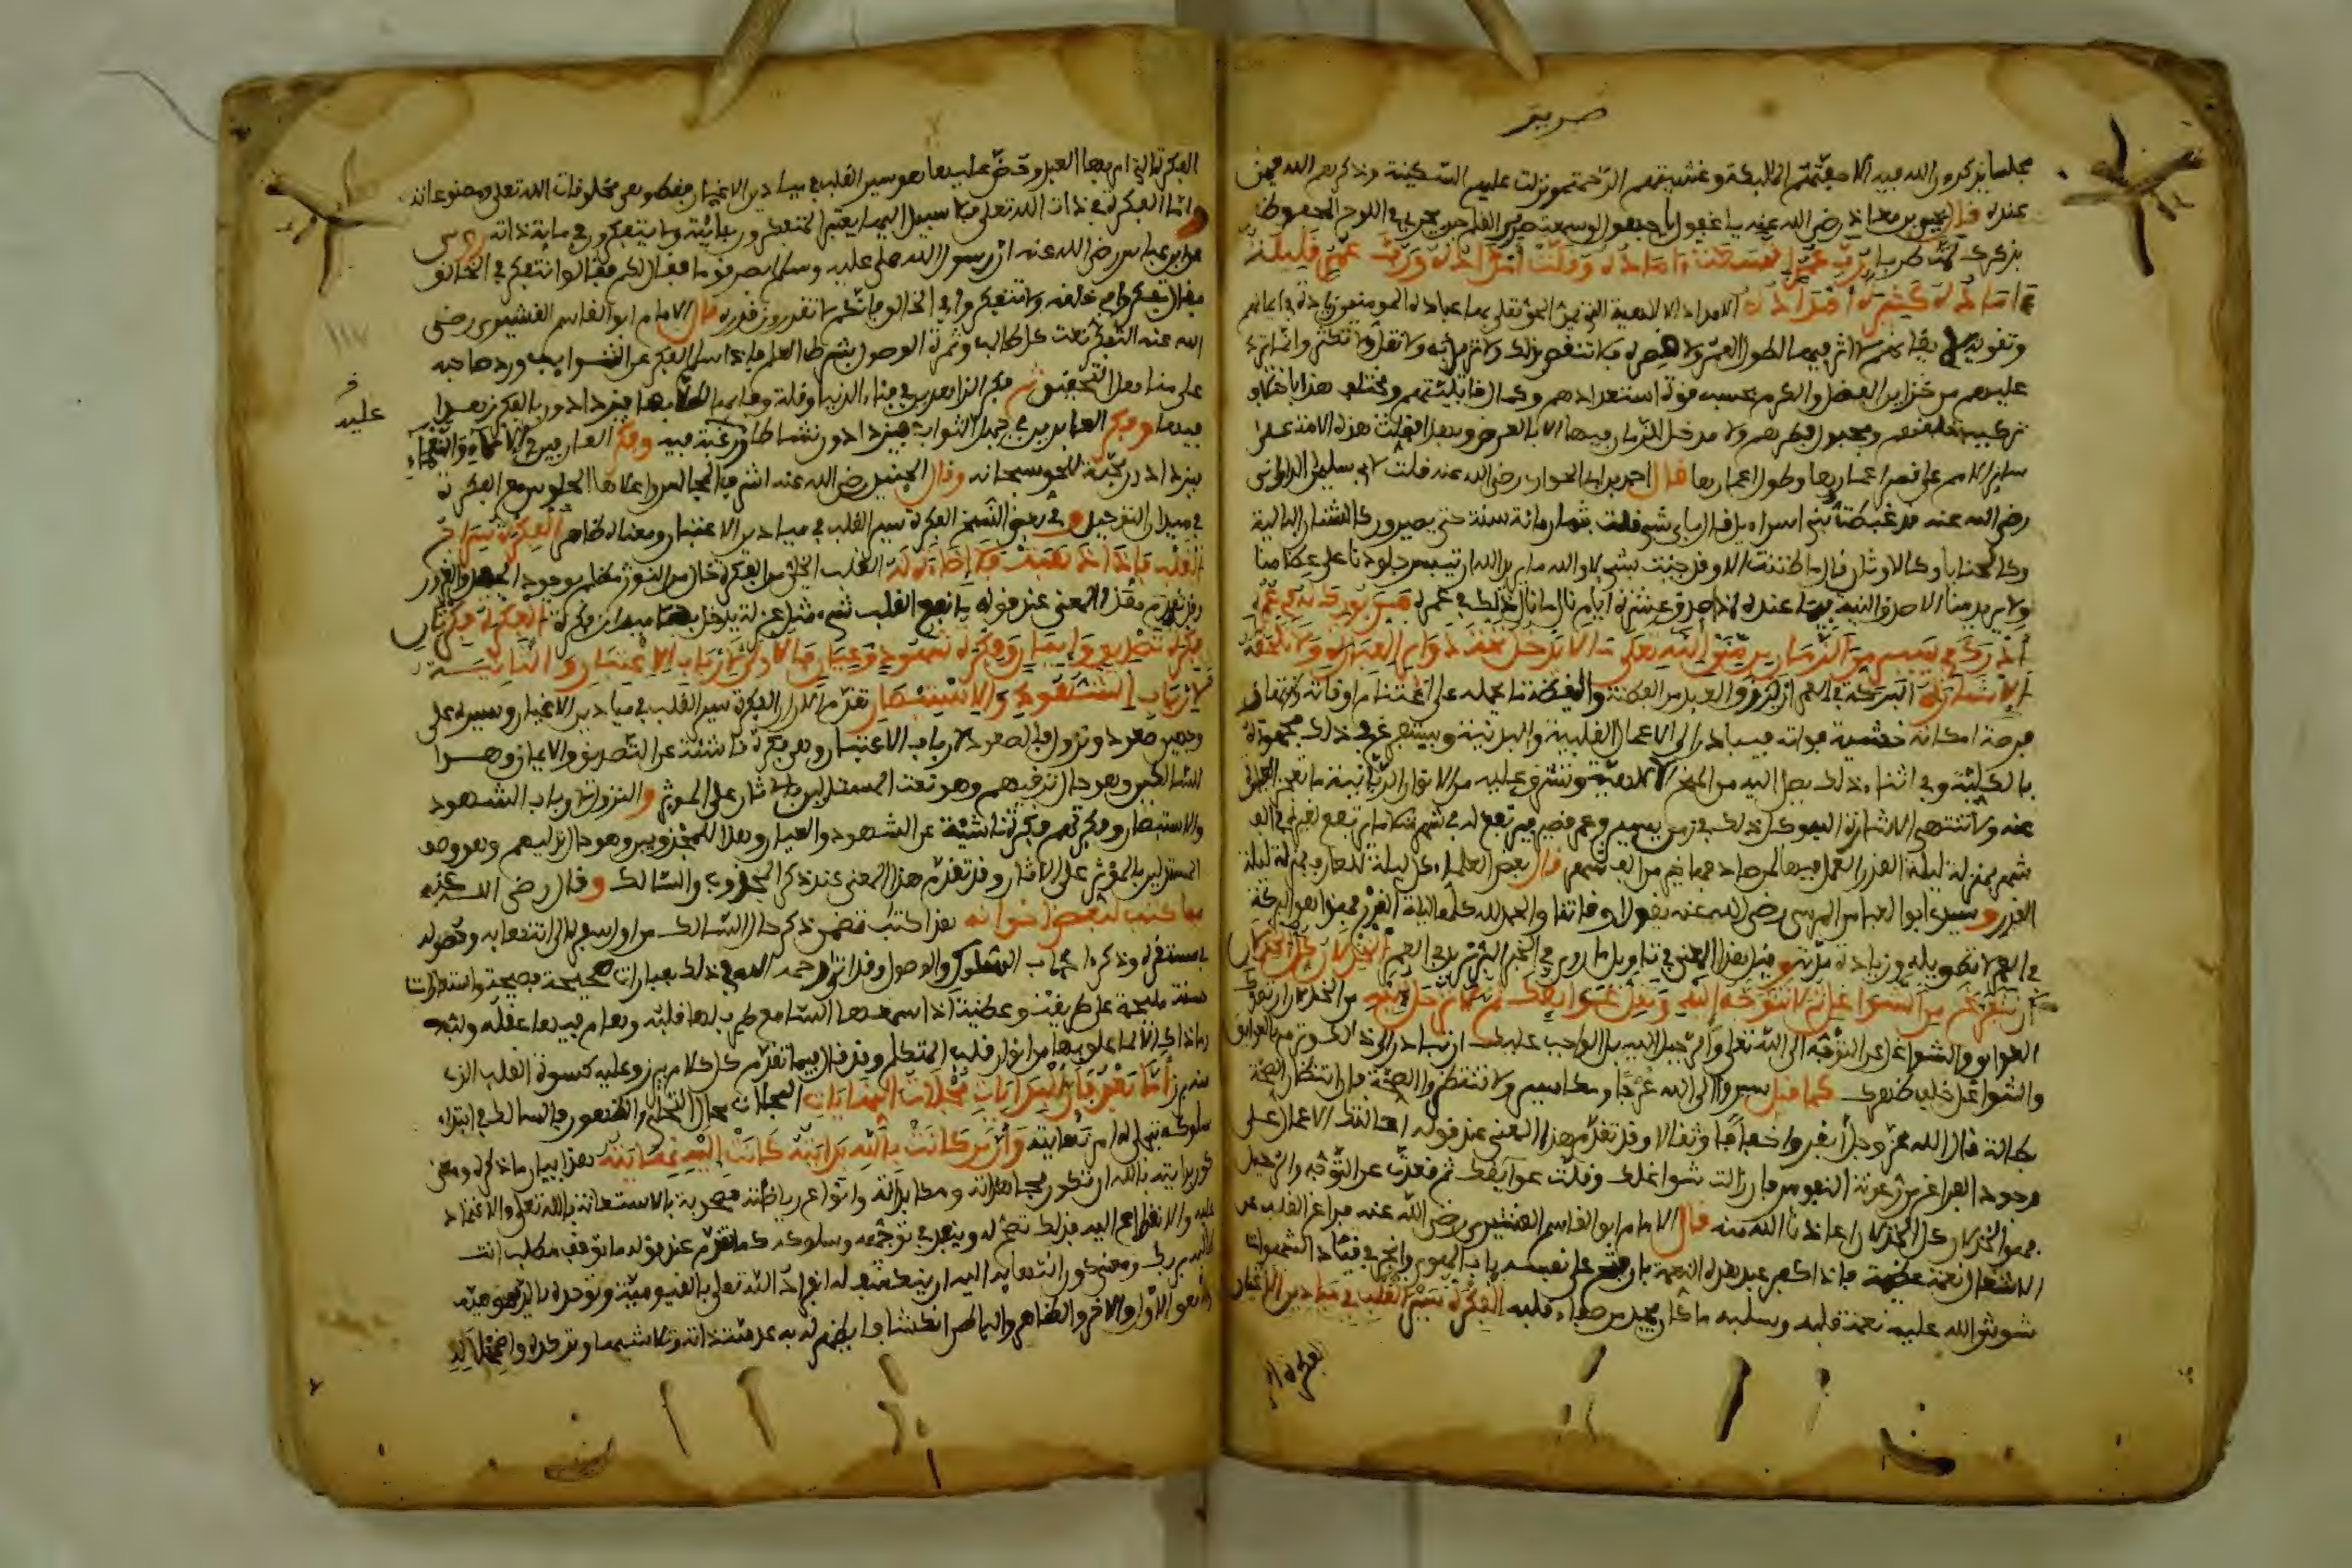 مجلسا يذكرون الله فيه الا حفتهم الملائكة وغشيتهم الرحمة ونزلت عليهم السكينة وذكرهم الله فيمن
عنده قال يحيى بن معاذ رضي الله عنه يا غفول يا جهول لو سمعت صرير القلم حين يجري في اللوح المحفوظ
بذكرك لمت طربا رب عمر اتسعت ءاماده وقلت امداده ورب عمر قليلة
ءاماده كثيرة امداده الامداد الالهية التي يمن الحق تعلى بها على عباده المومنين زيادة في ايمانهم
وتقوية يقينهم لا اثر فيها لطول العمر ولا قصره فلا تنقص بذلك ولا تزيد به ولا تقل ولا تكثر وانما ترد
عليهم من خزاين الفضل والكرم بحسب قوة استعدادهم وكمال قابليتهم ويختلف هذا باختلاف
سائر الامم على قصر اعمارها وطول اعمارها قال احمد بن ابي الحواري رضي الله عنه قلت لابي سليمن الداراني
رضي الله عنه قد غبطت بني اسراءيل قال باي شيء قلت بثمان مائة سنة حتى يصيروا كالشنان البالية
وكالحنايا وكالاوتار قال ما ظننت الا وقد جئت بشيء لا والله ما يريد الله ان تيبس جلودنا على عظامنا
ولا يريد منا الا صدق النية فيما عنده هذا اذا صدق في عشرة ايام نال ما نال ذلك في عمره من بورك له في عمره
ادرك في يسير من الزمان من منن الله تعلى ما لا يدخل تحت دوائر العبارة ولا تلحقه
الاشارة البركة في العمر ان يرزق العبد من الفطنة واليقظة ما يحمله على اغتنام اوقاته وانتهاز
فرصة امكانه خشية فواته فيبادر الى الاعمال القلبية والبدنية ويستفرغ في ذلك مجهوده
بالكلية وفي اثناء ذلك يصل اليه من المنح الالهية وتشرق عليه من الانوار الربانية ما تعجز العبارة
عنه ولا تنتهي الاشارة اليه وكل ذلك في زمن يسير وعمر قصير فيرتفع له في شهر مثلا ما لم يرتفع لغيره في الف
شهر بمنزلة ليلة القدر العمل فيها لمن صادفها خير من الف شهر قال بعض العلماء كل ليلة للعارف بمنزلة ليلة
القدر وسيدي ابو العباس المرسي رضي الله عنه يقول اوقاتنا والحمد لله كلها ليلة القدر فهذا هو البركة
في العمر لا تطويله وزيادة مدته وقيل هذا المعنى في تاويل ما روي في الخبر البر يزيد في العمر الخذلان كل الخذلان
ان تتفرغ من الشواغل ثم لا تتوجه اليه وتقل عوائقك ثم لا ترحل اليه من الخذلان ان تعوقك
العوايق والشواغل عن التوجه الى الله تعلى والرحيل اليه بل الواجب عليك ان تبادر الى ذلك وترمي بالعوايق
والشواغل خلف ظهرك كما قيل سيروا الى الله عرجا ومكاسير ولا تنتظروا الصحة فان انتظار الصحة
بطالة قال الله عز وجل انفروا خفافا وثقالا وقد تقدم هذا المعنى عند قوله احالتك الاعمال على
وجود الفراغ من رعونة النفوس فان زالت شواغلك وقلت عوايقك ثم قعدت عن التوجه والرحيل
فهو الخذلان كل الخذلان اعاذنا الله منه قال الامام ابو القاسم القشيري رضي الله عنه فراغ القلب من
الاشغال نعمة عظيمة فاذا كفر عبد هذه النعمة بان فتح على نفسه باب الهوى وانجر في قياد الشهوات
شوش الله عليه نعمة قلبه وسلبه ما كان يجد من صفاء قلبه الفكرة سير القلب في ميادين الاغيار
الفكرة التي
الفكرة التي امر بها العبد وحض عليها هو سير القلب في ميادين الاغيار فقط وهي مخلوقات الله تعلى ومصنوعاته
واما الفكرة في ذات الله تعلى فلا سبيل اليها يعتبر المتفكرون بئاياته ولا يتفكرون في ماية ذاته روي
عن ابن عباس رضي الله عنه ان رسول الله صلى عليه وسلم ابصر قوما فقال ما لكم فقالوا نتفكر في الخالق
عليه
فقال تفكروا في خلقه ولا تتفكروا في الخالق فانكم لا تقدرون قدره قال الامام ابو القاسم القشيري رضي
الله عنه التفكر نعت كل طالب وثمرته الوصول بشرط العلم فاذا سلم الفكر عن الشوايب ورد صاحبه
على مناهل التحقيق ثم فكر الزاهدين في فناء الدنيا وقلة وفايها لطلابها فيزدادون بالفكر زهدا
فيها وفكر العابدين في جميل الثواب فيزدادون نشاطا ورغبة فيه وفكر العارفين في الالاء والنعماء
فيزدادون محبة للحق سبحانه وقال الجنيد رضي الله عنه اشرف المجالس واعلاها الجلوس مع الفكرة
في ميدان التوحيد وفي بعض النسخ الفكرة سير القلب في ميادين الاعتبار ومعناه ظاهر الفكرة سراج
القلب فاذا ذهبت فلا اضاءة له القلب الخالي من الفكرة خال من النور مظلم بوجود الجهل والغرور
وقد تقدم هذا المعنى عند قوله ما نفع القلب شيء مثل عزلة يدخل بها ميدان فكرة الفكرة فكرتان
فكرة تصديق وايمان وفكرة شهود وعيان فالاولى لارباب الاعتبار والثانية
لارباب الشهود والاستبصار تقدم الان ان الفكرة سير القلب في ميادين الاغيار وسيره على
وجهين صعود ونزول فالصعود لارباب الاعتبار وهي فكرة ناشئة عن التصديق والايمان وهذا
للسالكين وهو حال ترقيهم وهو نعت المستدلين بالاثار على المؤثر والنزول لارباب الشهود
والاستبصار وفكرتهم فكرة ناشئة عن الشهود والعيان وهذا للمجذوبين وهو حال تدليهم وهو وصف
المستدلين بالمؤثر على الاثار وقد تقدم هذا المعنى عند ذكر المجذوب والسالك وقال رضي الله عنه
مما كتب لبعض اخوانه هذا كتاب تضمن ذكر حال السالك من اول سفره الى انتهايه وحصوله
في مستقره وذكر اداب السلوك والوصول وقد اتى رحمه الله في ذلك بعبارات صحيحة فصيحة واستعارات
حسنة مليحة على طريقة وعظية اذا سمعها السامع طرب لها قلبه وهام فيها عقله ولبه
وما ذاك الا لما علم بها من انوار قلب المتكلم وقد قال فيما تقدم كل كلام يبرز وعليه كسوة القلب الذي
منه برز اما بعد فان البدايات مجلات النهايات المجلات محل التجلي والظهور فالسالك في ابتداء
سلوكه يتجلى له امر نهايته وان من كانت بالله بدايته كانت اليه نهايته هذا بيان ما ذكره ومعنى
كون بدايته بالله ان تكون مجاهداته ومكابداته وانواع رياضته مصحوبة بالاستعانة بالله تعلى والاعتماد
عليه والانقطاع اليه فبذلك تصح له وينفذ في توجهه وسلوكه كما تقدم عند قوله ما توقف مطلب انت
طالبه بربك ومعنى كون انتهايه اليه ان ينكشف له انفراد الله تعلى بالقيومية وتوحده بالديمومية
وانه هو الاول والاخر والظاهر والباطن انكشافا يظهر له به عدميته ذاته وتلاشيها وتدكدكه واضمحلاله